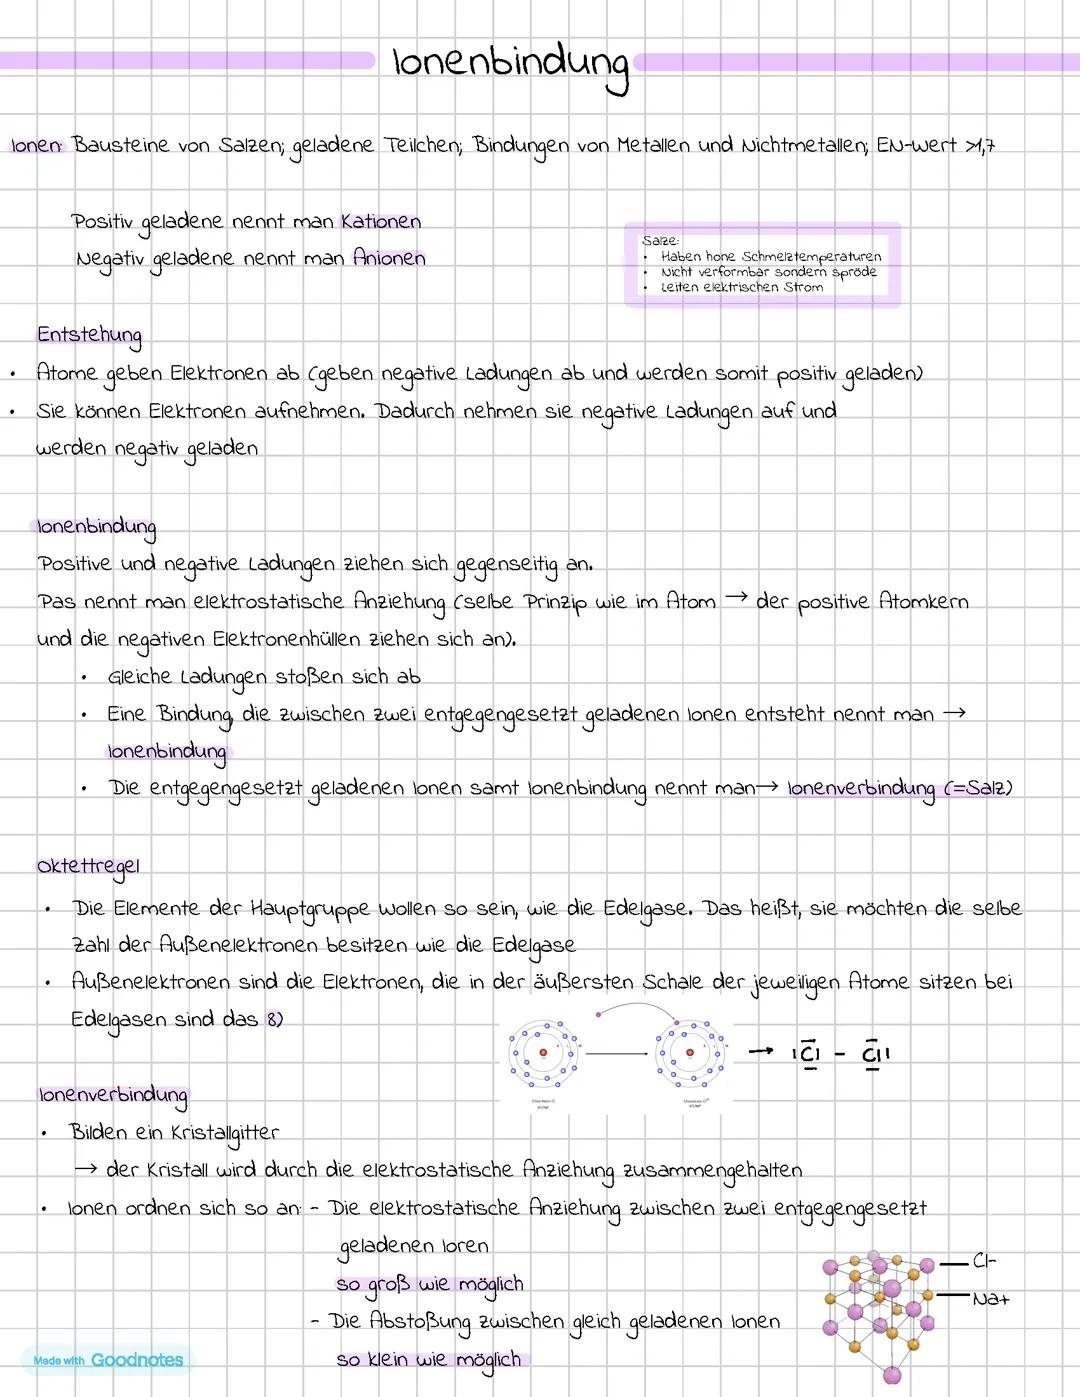 Ionenbindung
Ionen: Bausteine von Salzen; geladene Teilchen; Bindungen von Metallen und Nichtmetallen; EN-Wert >1,7
Positiv geladene nennt man Kationen
Negativ geladene nennt man Anionen
Salze:
• Haben hohe Schmelztemperaturen
• Nicht verformbar sondern spröde
• Leiten elektrischen Strom
Entstehung
• Atome geben Elektronen ab (geben negative Ladungen ab und werden somit positiv geladen)
• Sie können Elektronen aufnehmen. Dadurch nehmen sie negative Ladungen auf und
werden negativ geladen
Ionenbindung
Positive und negative Ladungen ziehen sich gegenseitig an.
Das nennt man elektrostatische Anziehung (selbe Prinzip wie im Atom → der positive Atomkern
und die negativen Elektronenhüllen ziehen sich an).
• Gleiche Ladungen stoßen sich ab
• Eine Bindung, die zwischen zwei entgegengesetzt geladenen Ionen entsteht nennt man →
Ionenbindung
• Die entgegengesetzt geladenen Ionen samt Ionenbindung nennt man→ Ionenverbindung (=Salz)
Oktettregel
• Die Elemente der Hauptgruppe wollen so sein, wie die Edelgase. Das heißt, sie möchten die selbe
Zahl der Außenelektronen besitzen wie die Edelgase
• Außenelektronen sind die Elektronen, die in der äußersten Schale der jeweiligen Atome sitzen bei
Edelgasen sind das 8)
→ |C̅l̲ - C̅l̲|
Ionenverbindung
• Bilden ein Kristallgitter
→ der Kristall wird durch die elektrostatische Anziehung zusammengehalten
• Ionen ordnen sich so an: - Die elektrostatische Anziehung zwischen zwei entgegengesetzt
geladenen Ioren
so groß wie möglich
- Die Abstoßung zwischen gleich geladenen Ionen
so klein wie möglich
Cl-
Na+
Made with Goodnotes